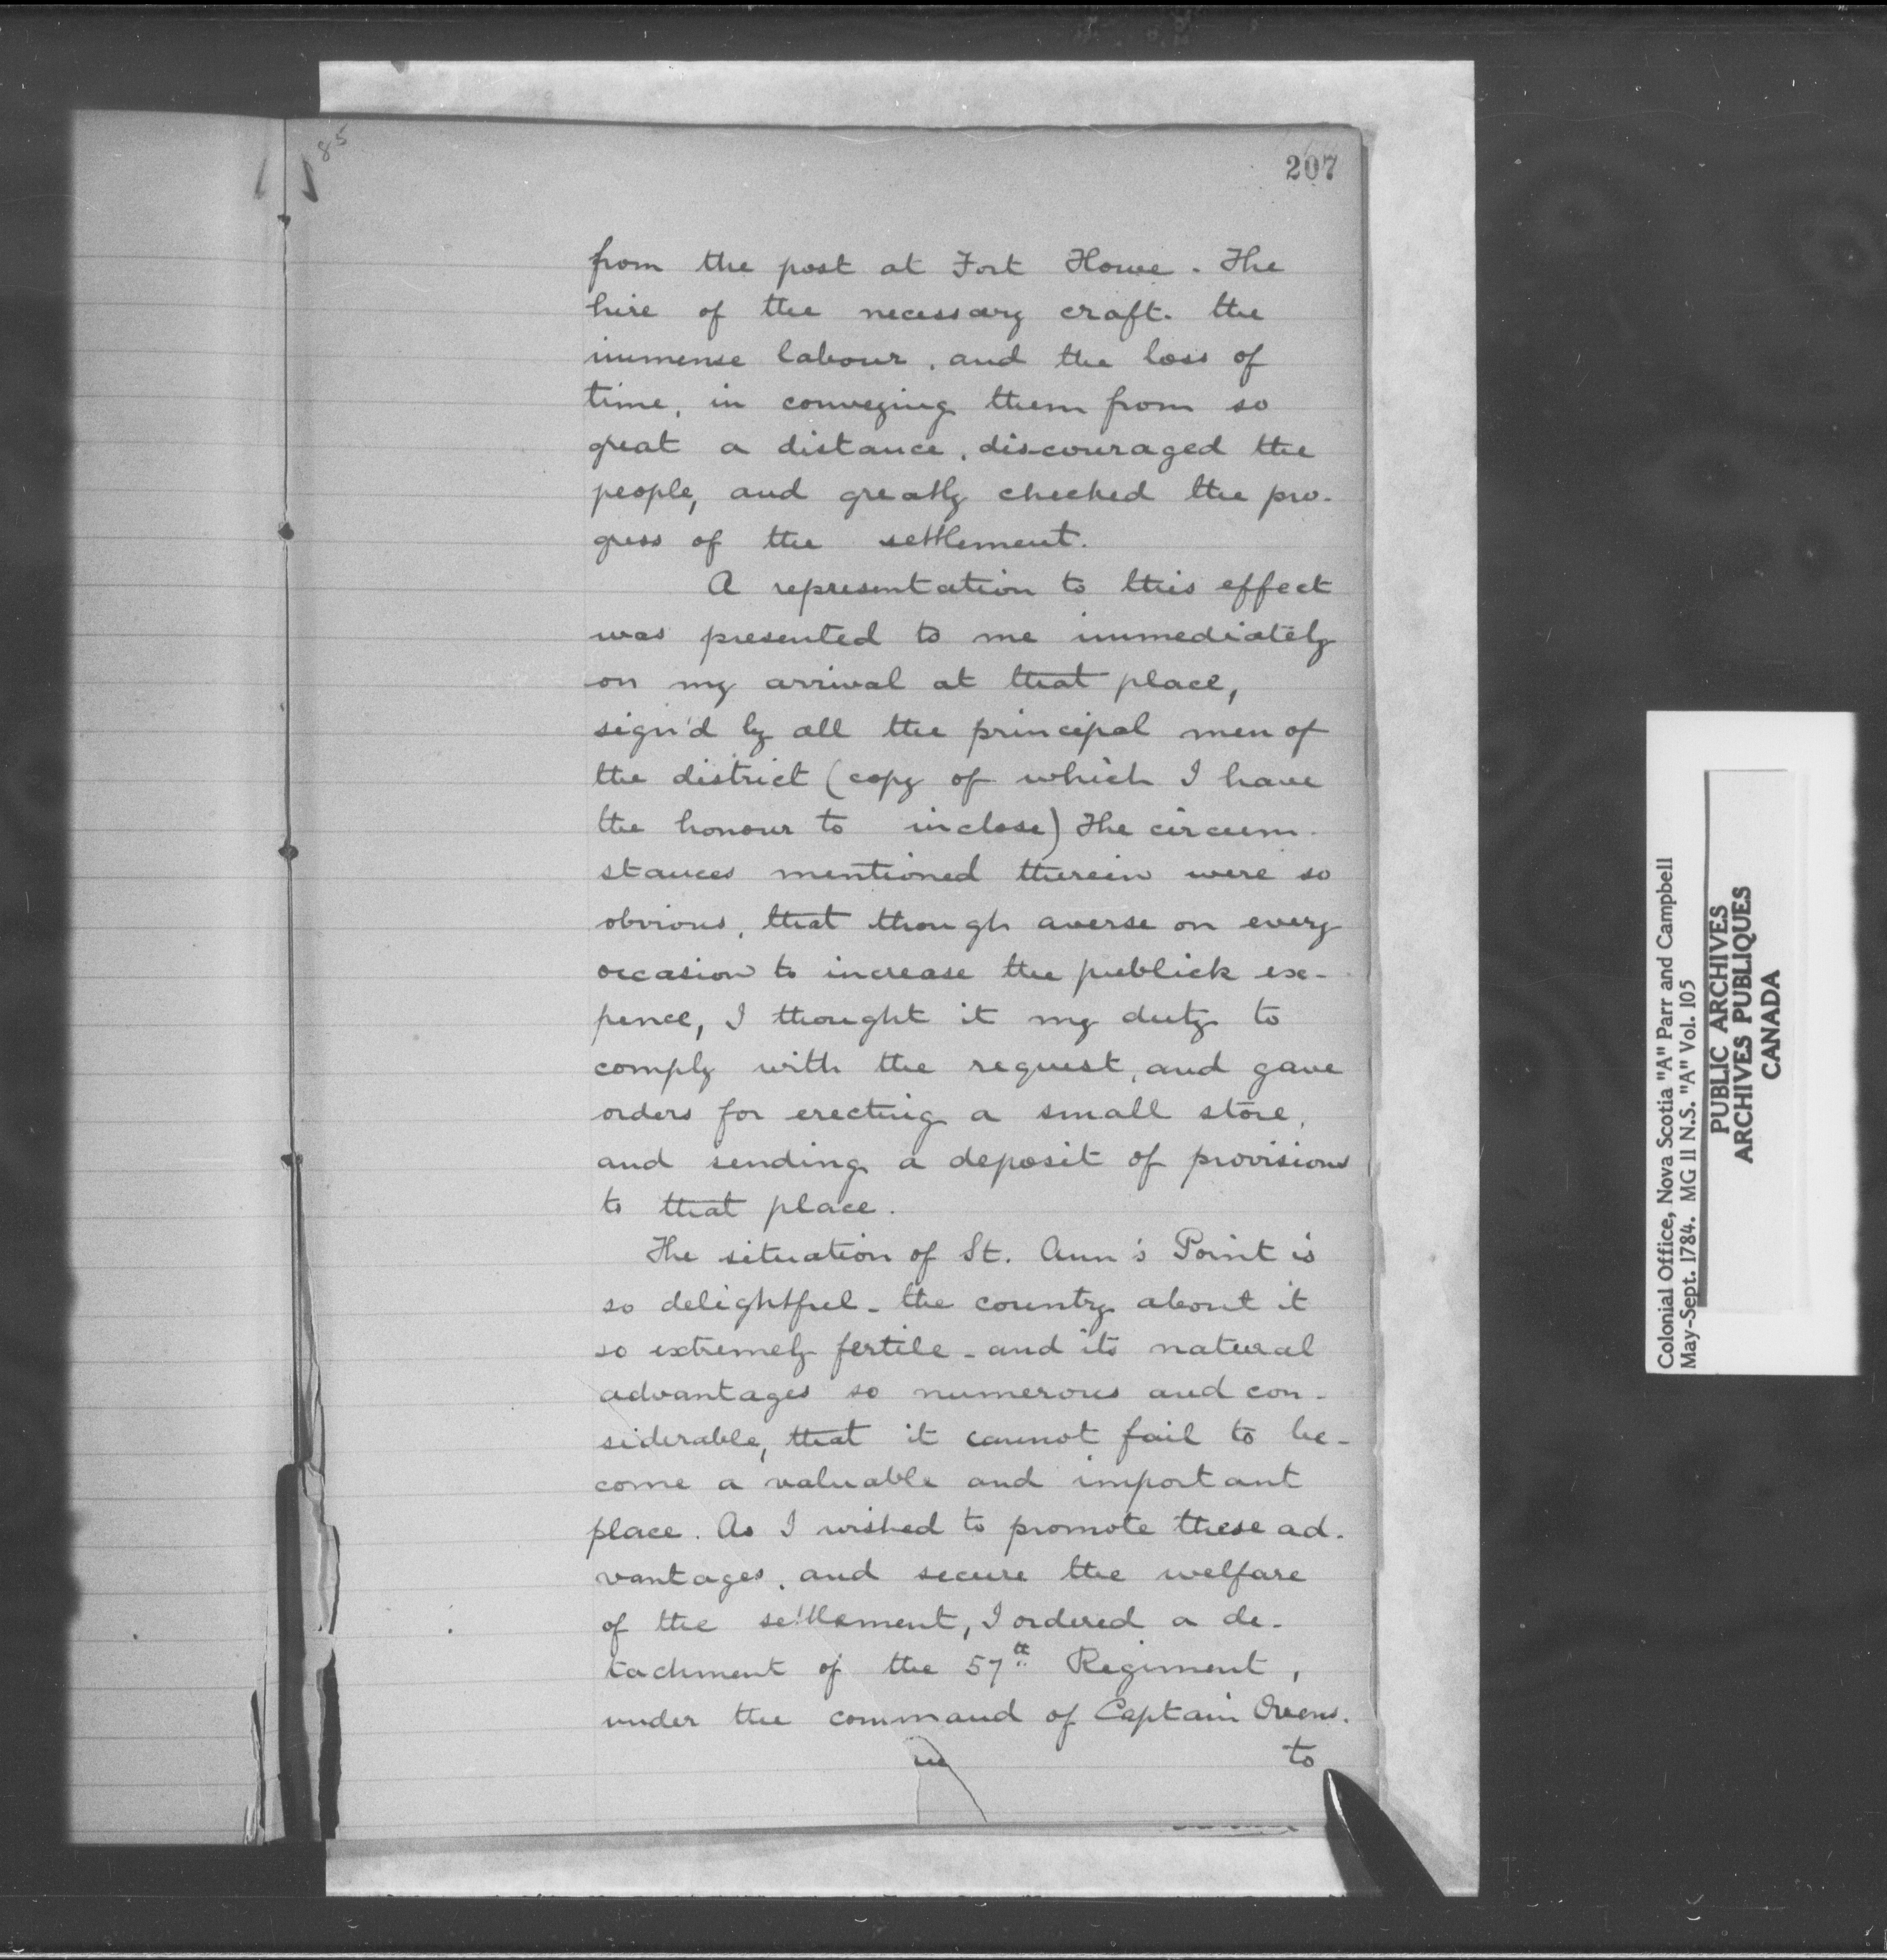 85
207
from the post at Fort Howe. The
hire of the necessary craft. the
immense labour, and the loss of
time, in conveying them from so
great a distance, discouraged the
people, and greatly checked the pro-
gress of the settlement.
A representation to this effect
was presented to me immediately
on my arrival at that place,
sign'd by all the principal men of
the district (copy of which I have
the honour to inclose) The circum-
stances mentioned therein were so
obvious, that though averse on every
occasion to increase the publick ex-
pence, I thought it my duty to
comply with the request, and gave
orders for erecting a small store,
and sending a deposit of provisions
to that place.
The situation of St. Ann's Point is
so delightful - the country about it
so extremely fertile - and its natural
advantages so numerous and con-
siderable, that it cannot fail to be-
come a valuable and important
place. As I wished to promote these ad-
vantages, and secure the welfare
of the settlement, I ordered a de-
tachment of the 57th Regiment,
under the command of Captain Owens.
to
Colonial Office, Nova Scotia "A" Parr and Campbell
May-Sept. 1784. MG 11 N.S. "A" Vol. 105
PUBLIC ARCHIVES
ARCHIVES PUBLIQUES
CANADA